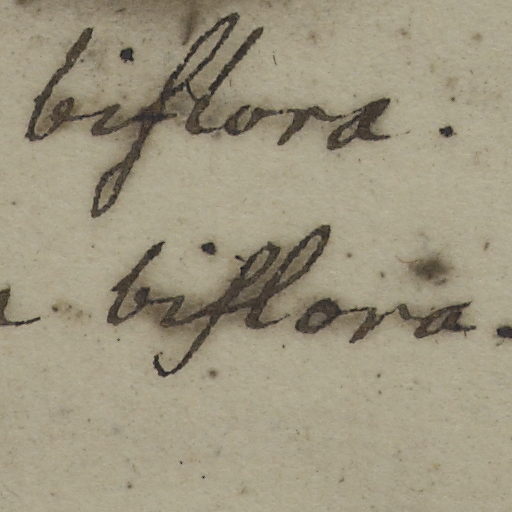 biflora.
a biflora.